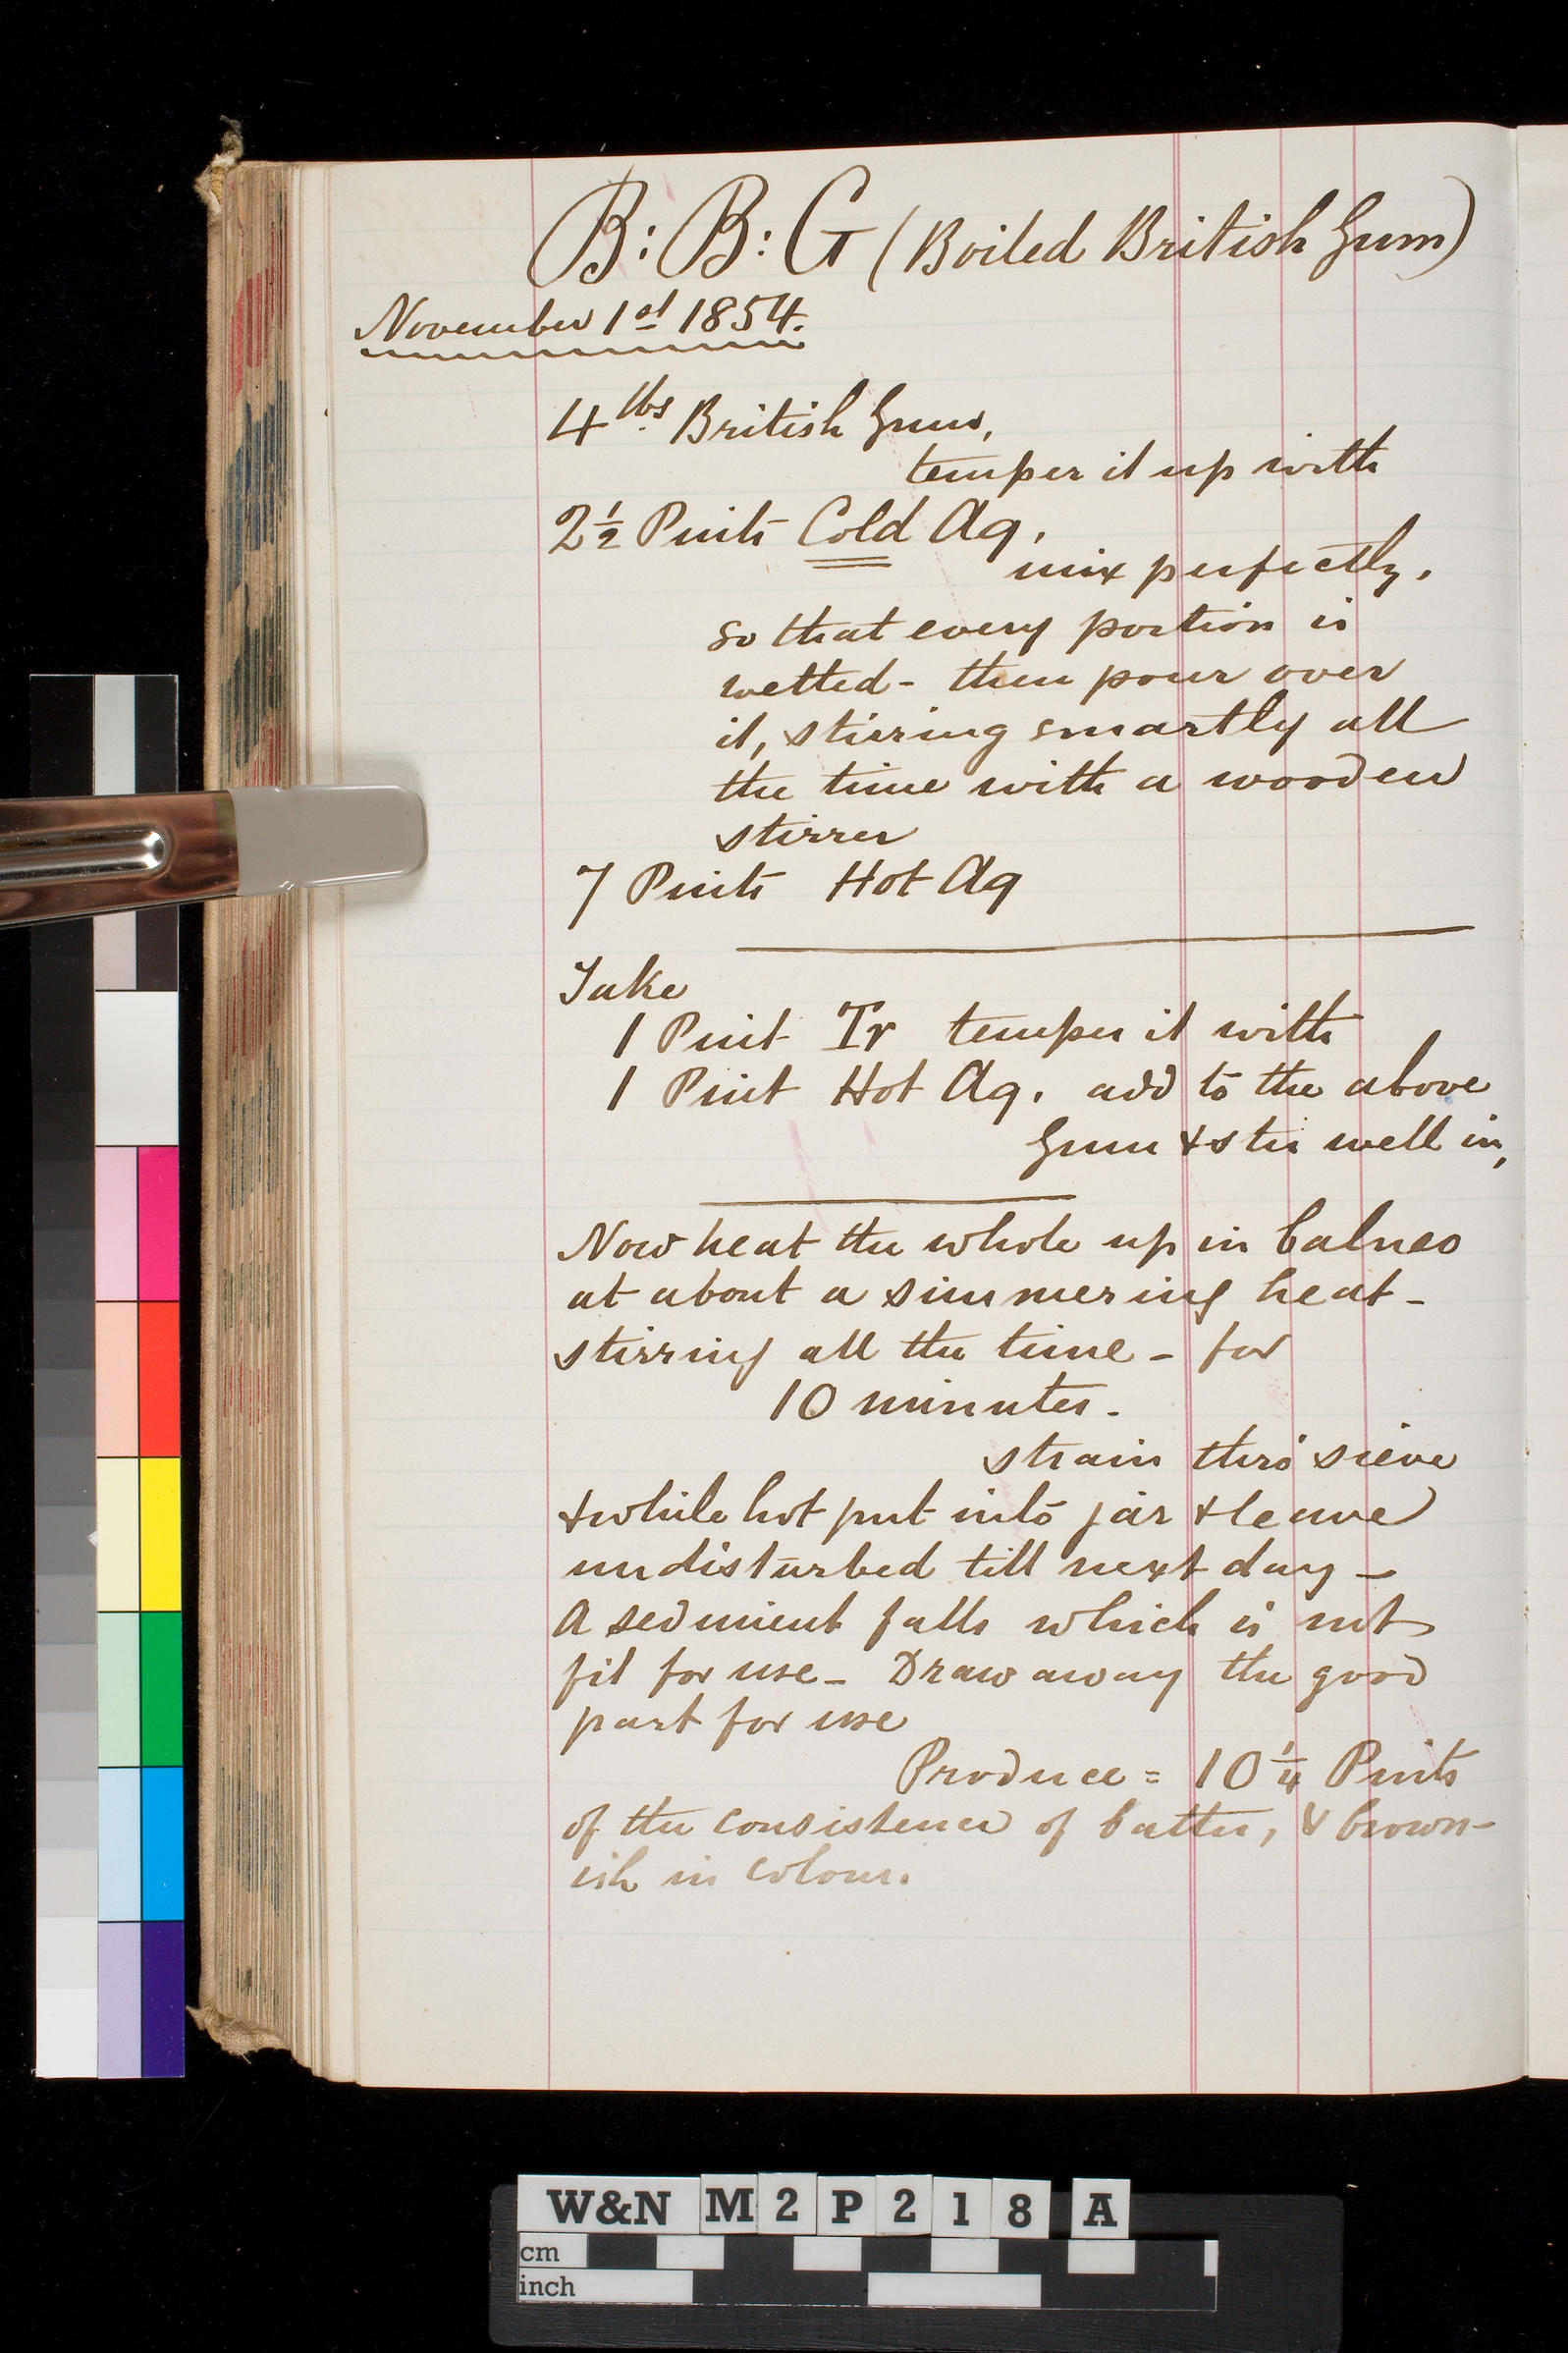 B: B: G (Boiled British Gum)
November 1st 1854.
4 lbs British Gum,
temper it up with
2½ Pints Cold Aq.
mix perfectly,
so that every portion is
wetted - then pour over
it, stirring smartly all
the time with a wooden
stirrer
7 Pints Hot Aq
Take
1 Pint Tr temper it with
1 Pint Hot Aq. add to the above
Gum & stir well in,
Now heat the whole up in balneo
at about a simmering heat -
stirring all the time - for
10 minutes.
strain thro' sieve
& while hot put into jar & leave
undisturbed till next day -
A sediment falls which is not
fit for use - Draw away the good
part for use
Produce = 10¼ Pints
of the consistence of batter, & brown-
ish in colour.
W&N M2P218 A
cm
inch